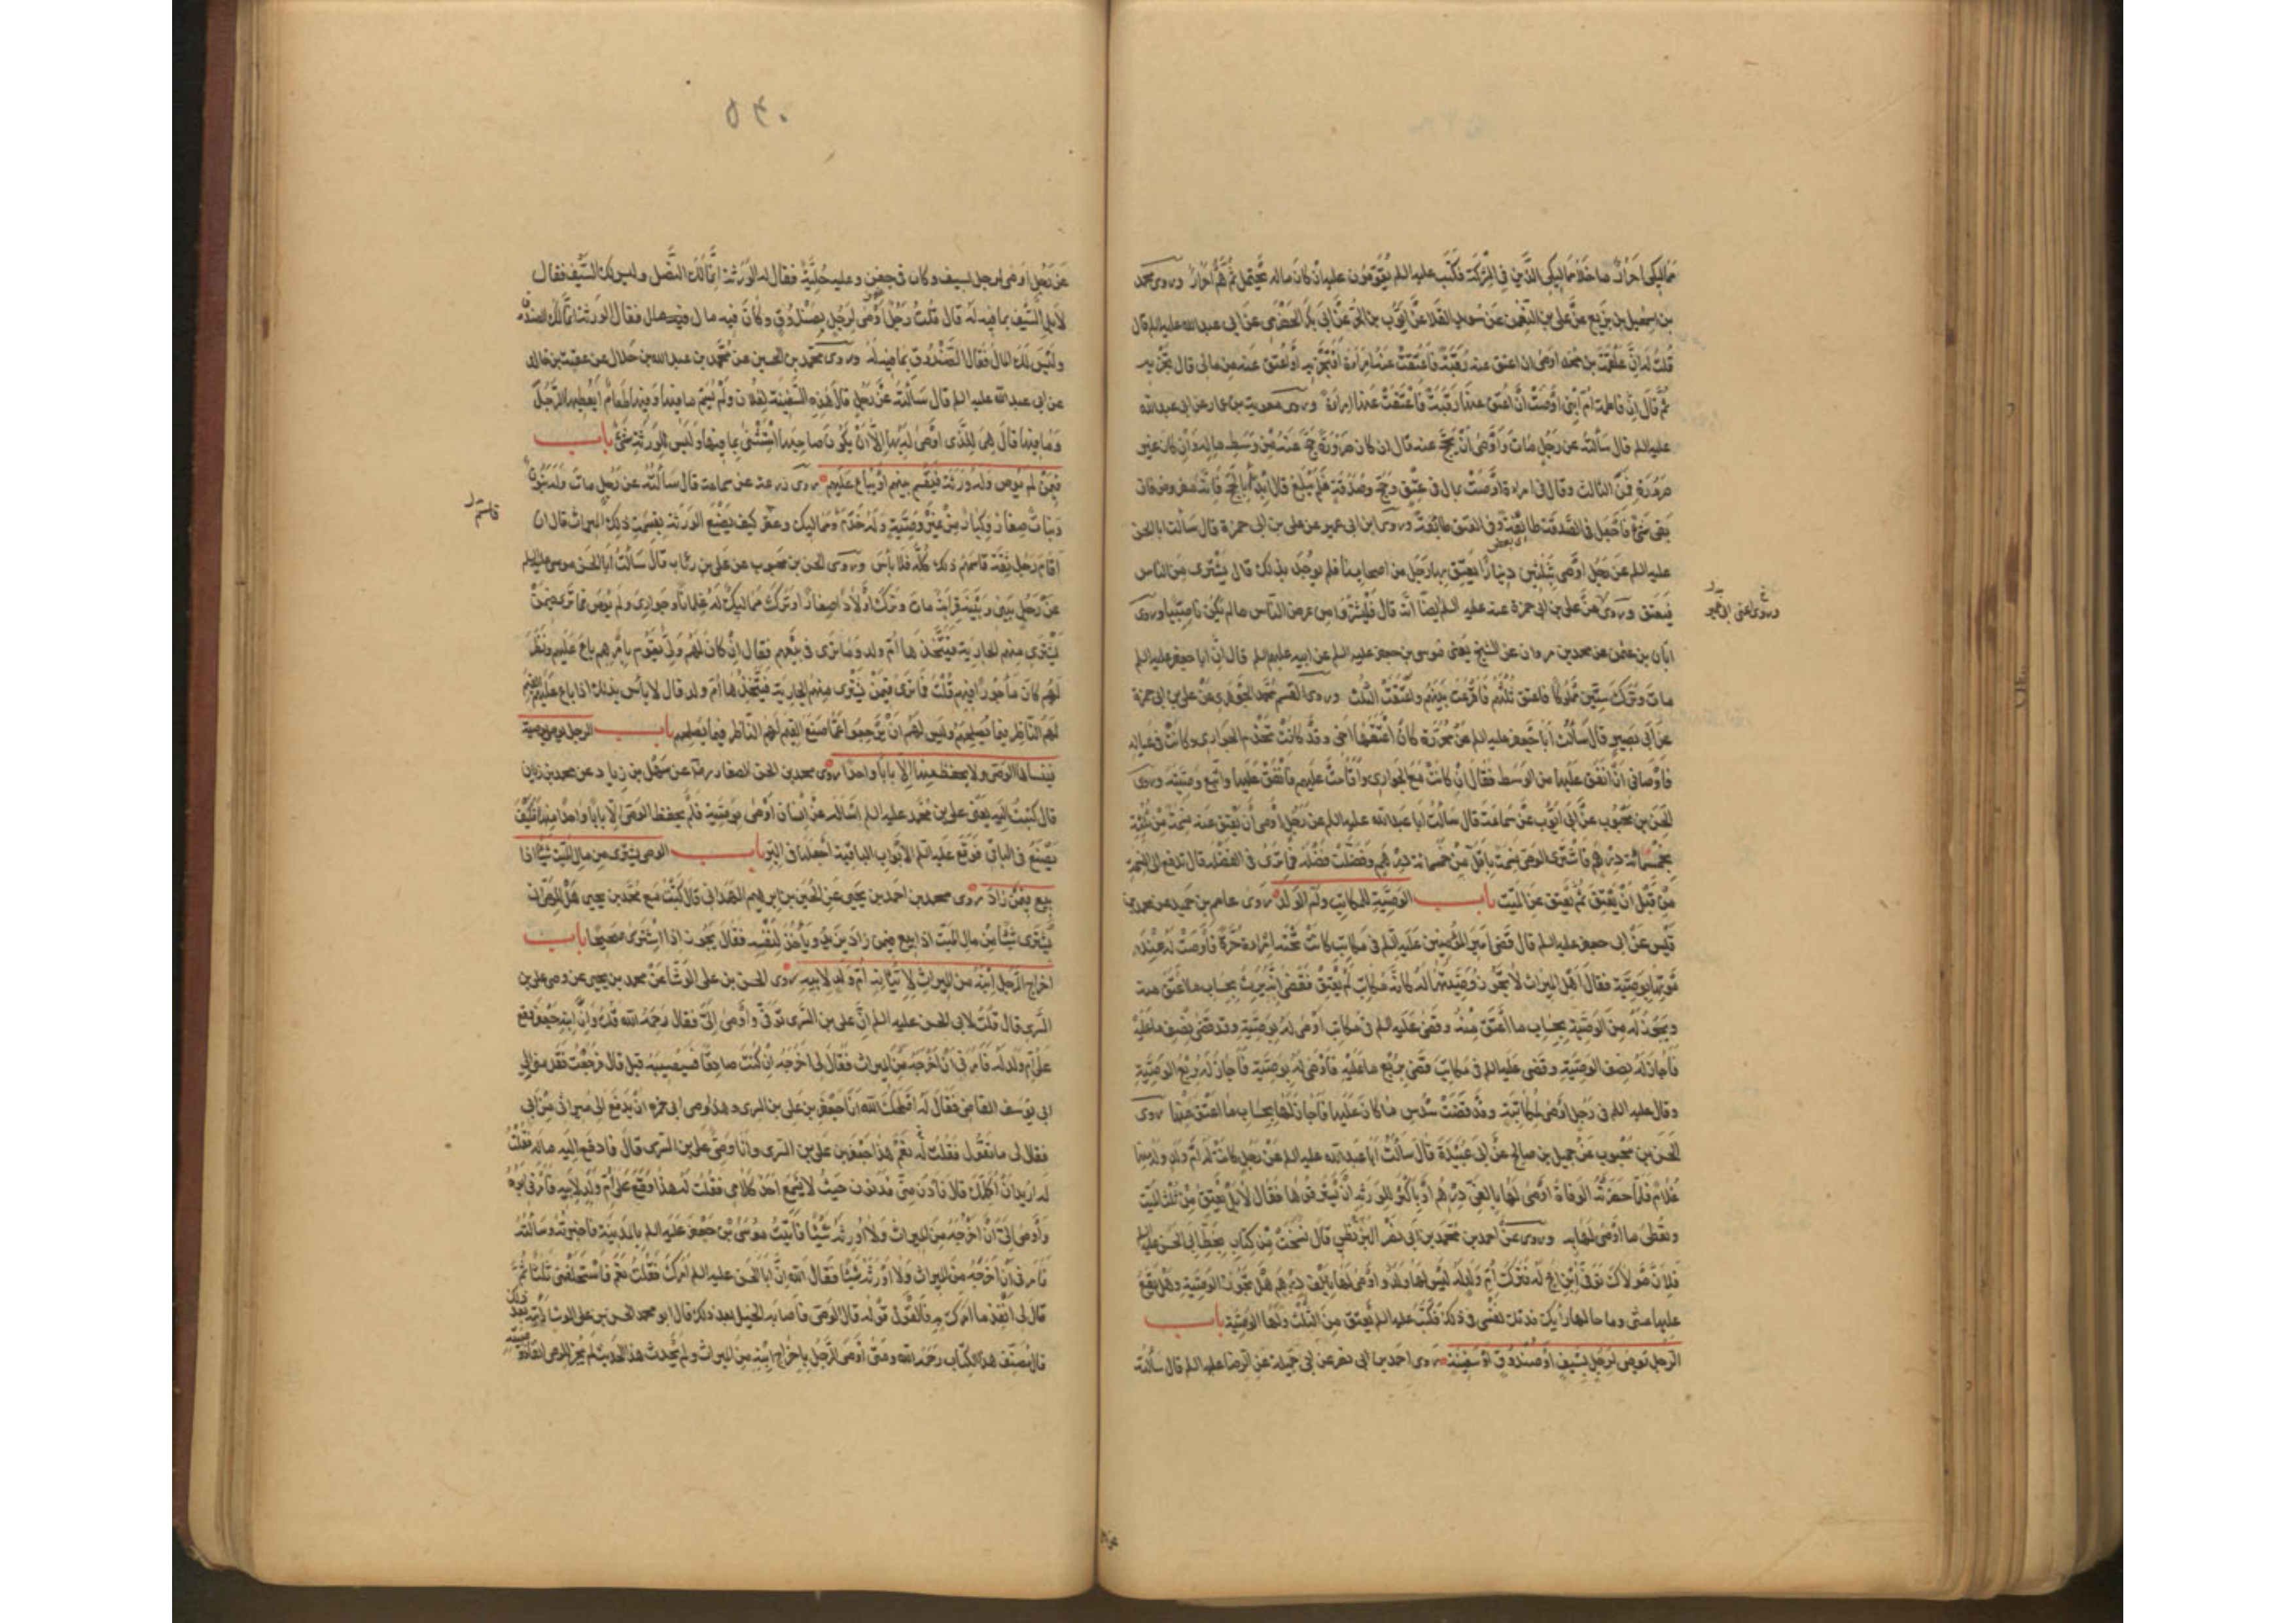 مماليكي احرار ما خلا مماليكي الذين في الشركة فكتب عليه السلم يقومون عليه ان كان ماله يحتمل ثم هم احرار وروى محمد
بن اسمعيل بن بزيع عن علي بن النعمن عن سويد القلا عن ايوب بن الحر عن ابي بكر الحضرمي عن ابي عبد الله عليه السلم قال
قلت له ان علقمة بن محمد اوصى ان اعتق عنه رقبة فاعتقت عنه امراة افتجزيه او اعتق عنه من مالي قال يجزيه
ثم قال ان فاطمة ام ابني اوصت ان اعتق عنها رقبة فاعتقت عنها امراة وروى معوية بن عمار عن ابي عبد الله
عليه السلم قال سألته عن رجل مات واوصى ان يحج عنه قال ان كان صرورة حج عنه من وسط ماله وان كان غير
صرورة فمن الثالث وقال في امراة اوصت بمال في عتق وحج وصدقة فلم يبلغ قال ابدأ بالحج فانه مفروض فان
بقي شئ فاجعل في الصدقة طائفة وفي العتق طائفة وروى ابن ابي عمير عن علي بن ابي حمزة قال سألت ابا الحسن
عليه السلم عن رجل اوصى بثلثين دينارا يعتق بها رجل من اصحابنا فلم يوجد بذلك قال يشترى من الناس
فيعتق وروى عن علي بن ابي حمزة عنه عليه السلم ايضا انه قال فليشتروا من عرض الناس ما لم يكن ناصبيا وروى
ابان بن عثمن عن محمد بن مروان عن الشيخ يعني موسى بن جعفر عليه السلم عن ابيه عليهم السلم قال ان ابا جعفر عليه السلم
مات وترك ستين مملوكا فاعتق ثلثهم فاقرعت بينهم واعتقت الثلث وروى القسم محمد الجوهري عن علي بن ابي حمزة
عن ابي بصير قال سألت ابا جعفر عليه السلم عن محررة كان اعتقها اخي وقد كانت تخدم الجواري وكانت في عياله
فاوصاني ان انفق عليها من الوسط فقال ان كانت مع الجواري واقامت عليهم فانفق عليها واتبع وصيته وروى
الحسن بن محبوب عن ابي ايوب عن سماعة قال سألت ابا عبد الله عليه السلم عن رجل اوصى ان يعتق عنه نسمة من ثلثه
بخمسمائة درهم فاشترى الوصي نسمة باقل من خمسمائة درهم وفضلت فضلة فما ترى في الفضلة قال تدفع الى النسمة
من قبل ان يعتق ثم يعتق عن الميت باب الوصية للمكاتب وام الولد روى عاصم بن حميد عن محمد بن
قيس عن ابي جعفر عليه السلم قال قضى امير المؤمنين عليه السلم في مكاتب كانت تحته امراة حرة فاوصت له عند
موتها بوصية فقال اهل الميراث لا يجوز وصيتها له انه مكاتب لم يعتق فقضى انه يرث بحساب ما اعتق منه
ويجوز له من الوصية بحساب ما اعتق منه وقضى عليه السلم في مكاتب اوصى له بوصية وقد قضى نصف ما عليه
فاجاز له نصف الوصية وقضى عليه السلم في مكاتب قضى ربع ما عليه فاوصى له بوصية فاجاز له ربع الوصية
وقال عليه السلم في رجل اوصى لمكاتبته وقد قضت سدس ما كان عليها فاجاز لها بحساب ما اعتق منها روى
الحسن بن محبوب عن جميل بن صالح عن ابي عبيدة قال سألت ابا عبد الله عليه السلم عن رجل كانت له ام ولد وله منها
غلام فلما حضرته الوفاة اوصى لها بالفي درهم او باكثر للورثة ان يسترقوها فقال لا بل يعتق من ثلث الميت
وتعطى ما اوصى لها به وروى عن احمد بن محمد بن ابي نصر البزنطي قال نسخت من كتاب بخط ابي الحسن عليه السلم
فلان مولاك توفي ابن اخ له فترك ام ولد له ليس لها ولد واوصى لها بالف درهم هل يجوز الوصية وهل يقع
عليها عتق وما حالها رأيك فدتك نفسي في ذلك فكتب عليه السلم يعتق من الثلث ولها الوصية باب
الرجل توصى لرجل بسيف او صندوق او سفينة روى احمد بن ابي نصر عن ابي جميلة عن الرضا عليه السلم قال سألته
٥٤٠
عن رجل اوصى لرجل بسيف وكان في جفن وعليه حلية فقال له الورثة انما لك النصل وليس لك السيف فقال
لا بل السيف بما فيه له قال قلت رجل اوصى لرجل بصندوق وكان فيه مال فقال الورثة انما لك الصندوق
وليس لك المال فقال الصندوق بما فيه له وروى محمد بن الحسين عن محمد بن عبد الله بن هلال عن عقبة بن خالد
عن ابي عبد الله عليه السلم قال سألته عن رجل قال هذه السفينة لفلان ولم يسم ما فيها وفيها طعام ايعطيها الرجل
وما فيها قال هي للذي اوصى له بها الا ان يكون صاحبها استثنى بما فيها وليس للورثة شئ باب
فيمن لم يوص وله ورثة فيقسم بينهم او يباع عليهم روى زرعة عن سماعة قال سألته عن رجل مات وله بنون
وبنات صغار وكبار من غير وصية وله خدم ومماليك وعقد كيف يصنع الورثة بقسمة ذلك الميراث قال ان
قام رجل ثقة قاسمهم ذلك كله فلا بأس وروى الحسن بن محبوب عن علي بن رئاب قال سألت ابا الحسن موسى عليه السلم
عن رجل بيني وبينه قرابة مات وترك اولادا صغارا وترك مماليك له غلمانا وجواري ولم يوص فما ترى فيمن
يشتري منهم الجارية فيتخذها ام ولد وما ترى في بيعهم فقال ان كان لهم ولي يقوم بامرهم باع عليهم ونظر
لهم كان مأجورا فيهم قلت فما ترى فيمن يشتري منهم الجارية فيتخذها ام ولد قال لا بأس بذلك اذا باع عليهم القيم
لهم الناظر فيما يصلحهم وليس لهم ان يرجعوا عما صنع القيم لهم الناظر فيما يصلحهم باب الرجل يوصي بوصية
فينساها الوصي ولا يحفظ منها الا بابا واحدا روى محمد بن الحسن الصفار رضه عن سهل بن زياد عن محمد بن ريان
قال كتبت اليه يعني علي بن محمد عليه السلم اسأله عن انسان اوصى بوصية فلم يحفظ الوصي الا بابا واحدا منها كيف
يصنع في الباقي فوقع عليه السلم الابواب الباقية اجعلها في البر باب الوصي يشتري من مال الميت شيئا اذا
بيع فيمن زاد روى محمد بن احمد بن يحيى عن الحسين بن ابرهيم الهمداني قال كتبت مع محمد بن يحيى هل للوصي ان
يشتري شيئا من مال الميت اذا بيع فيمن زاد يزيد وياخذ لنفسه فقال يجوز اذا اشترى صحيحا باب
اخراج الرجل ابنه من الميراث لاتيانه ام ولد لابيه روى الحسن بن علي الوشا عن محمد بن يحيى عن وصي علي بن
السري قال قلت لابي الحسن عليه السلم ان علي بن السري توفي واوصى الي فقال رحمه الله قلت وان ابنه جعفر وقع
على ام ولد له فامرني ان اخرجه من الميراث فقال لي اخرجه ان كنت صادقا فسيصيبه خبل قال فرجعت فقدمني الى
ابي يوسف القاضي فقال له اصلحك الله انا جعفر بن علي بن السري وهذا وصي ابي فمره ان يدفع الي ميراثي من ابي
فقال لي ما تقول فقلت له نعم هذا جعفر بن علي بن السري وانا وصي علي بن السري قال فادفع اليه ماله فقلت
له اريد ان اكلمك قال فادن مني فدنوت حيث لا يسمع احد كلامي فقلت له هذا وقع على ام ولد لابيه فامرني ابوه
واوصى الي ان اخرجه من الميراث ولا اورثه شيئا فاتيت موسى بن جعفر عليه السلم بالمدينة فاخبرته وسألته
فامرني ان اخرجه من الميراث ولا اورثه شيئا فقال الله ان ابا الحسن عليه السلم امرك فقلت نعم فاستحلفني ثلثا ثم
قال لي انفذ ما امرك به فالقول قوله قال الوصي فاصابه الخبل بعد ذلك قال ابو محمد الحسن بن علي الوشا رأيته بعد ذلك
قال مصنف هذا الكتاب رحمه الله ومتى اوصى الرجل باخراج ابنه من الميراث ولم يحدث هذا الحدث لم يجز للوصي انفاذ
قاسم